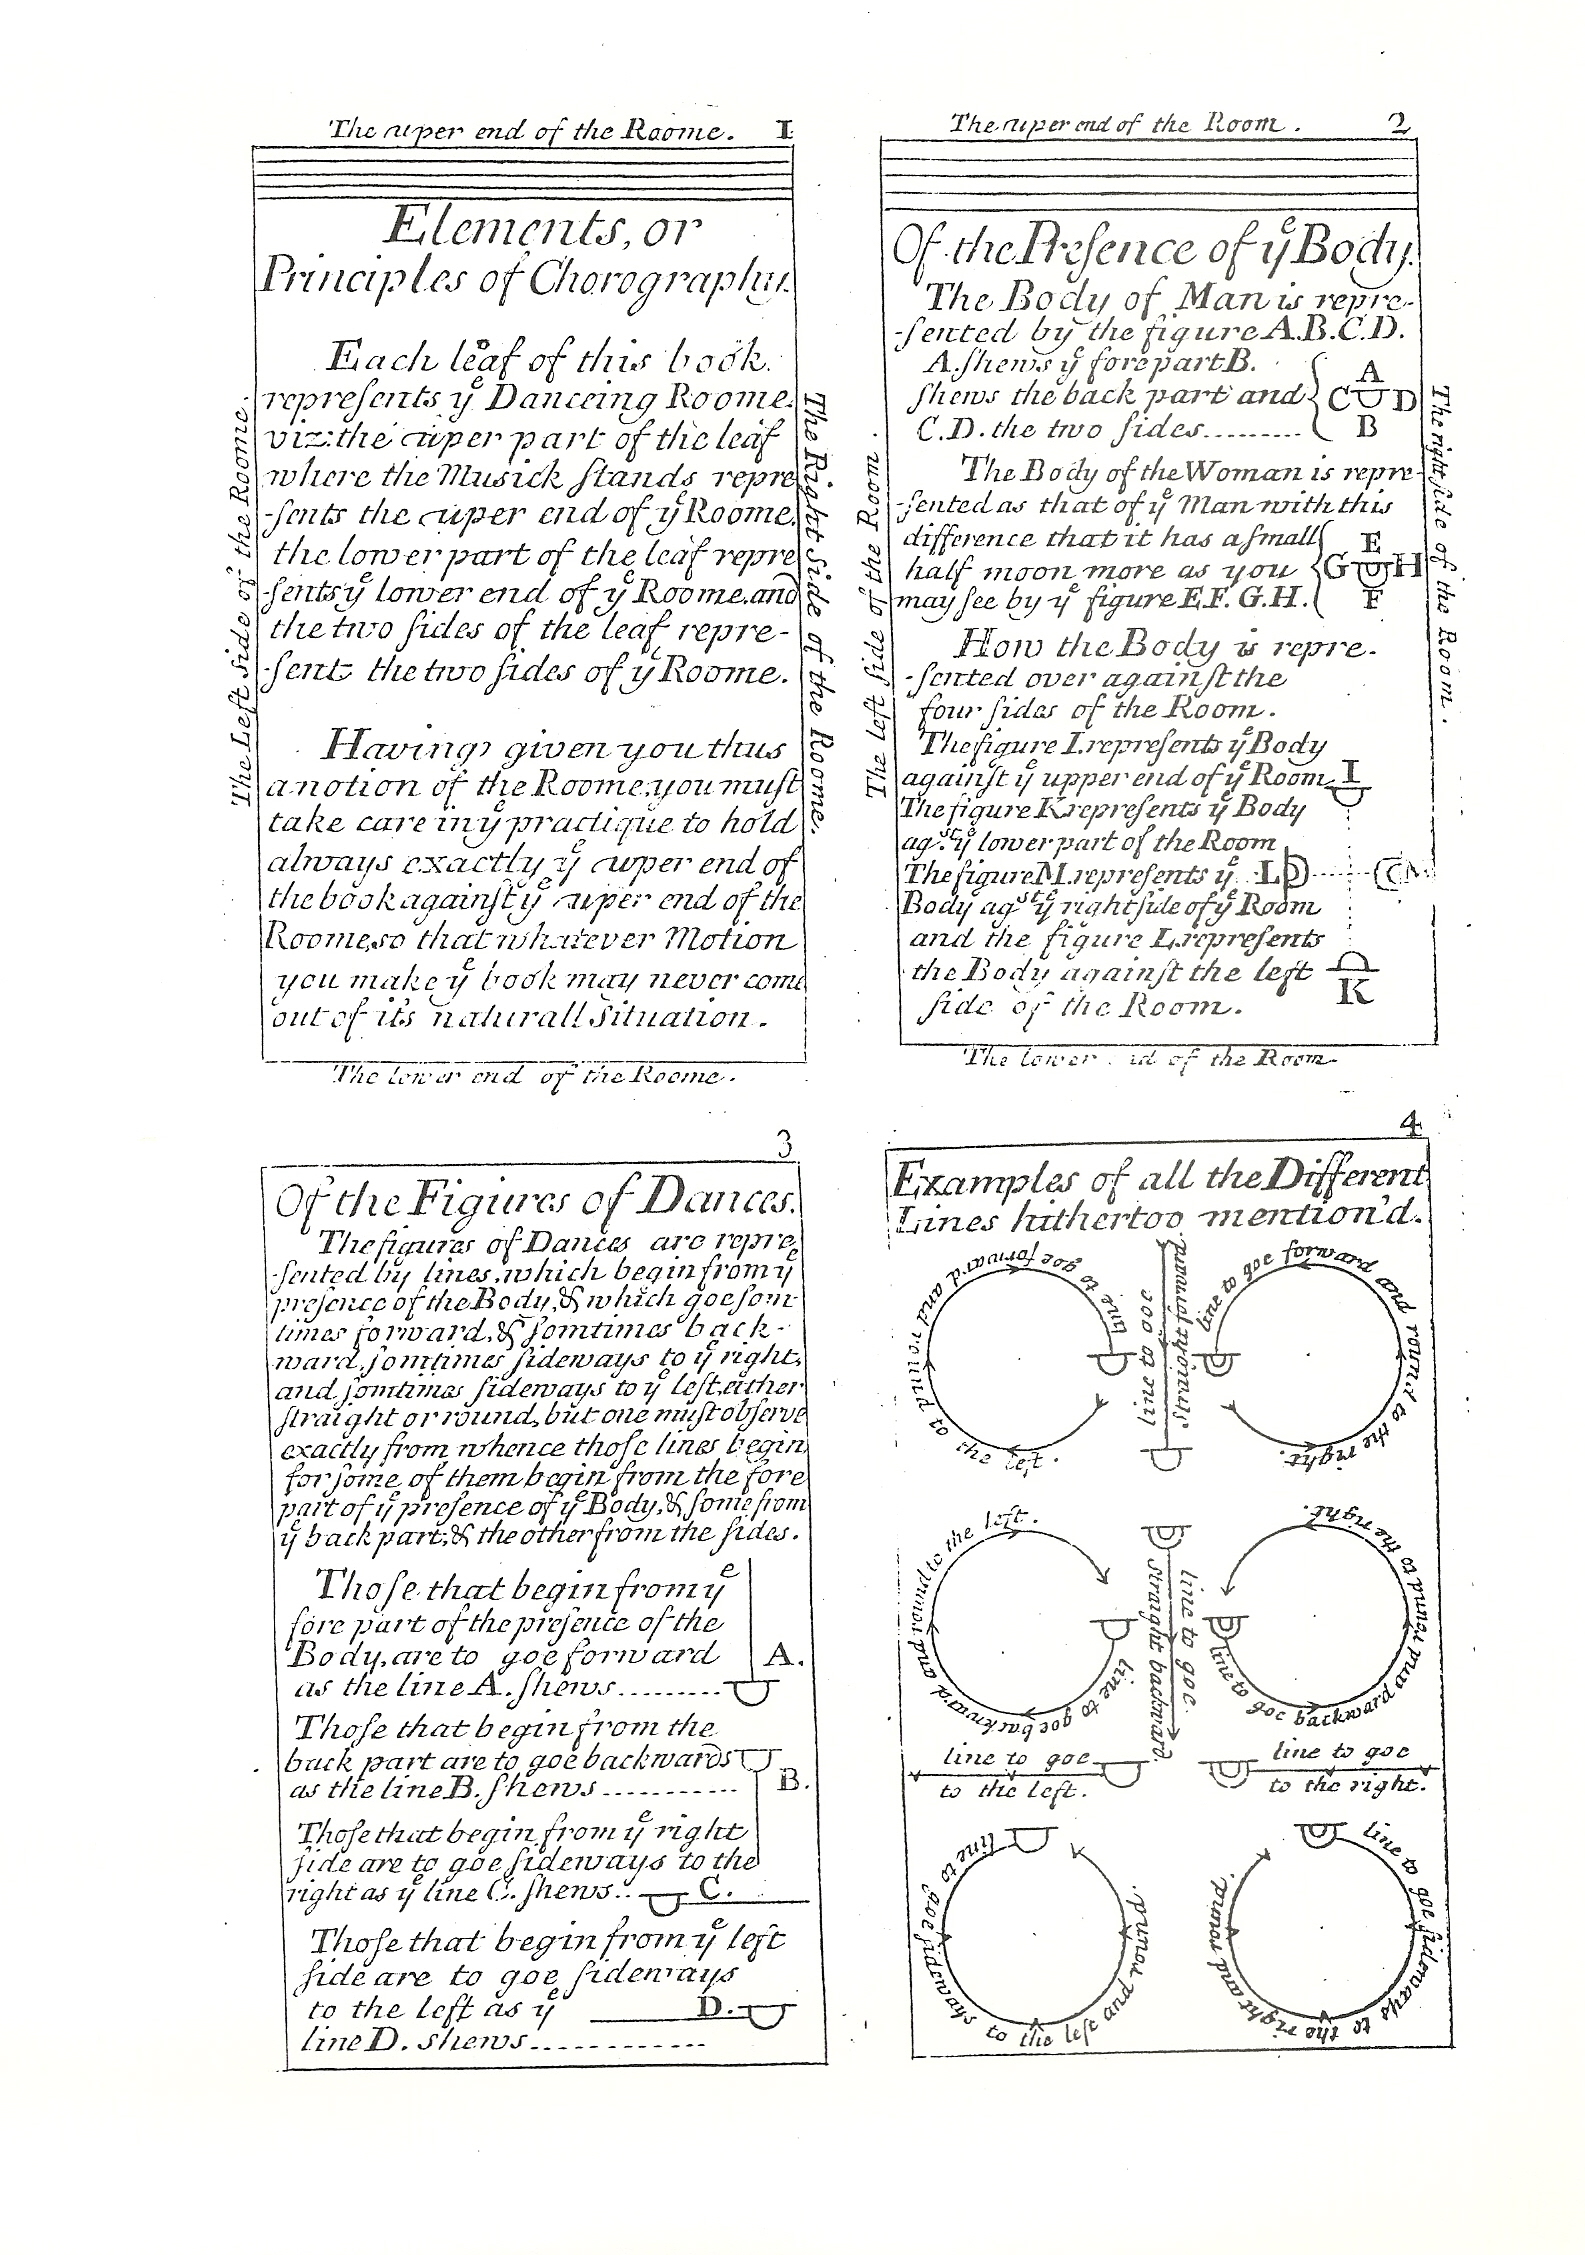 The uper end of the Roome. I
The Left side of the Roome.
Elements, or
Principles of Chorography.
Each leaf of this book.
represents yͤ Danceing Roome.
viz: the uper part of the leaf
where the Musick stands repre
-sents the uper end of yͤ Roome.
the lower part of the leaf repre
-sents yͤ lower end of yͤ Roome. and
the two sides of the leaf repre-
-sent the two sides of yͤ Roome.
Having given you thus
a notion of the Roome, you must
take care in yͤ practique to hold
always exactly yͤ uper end of
the book against yͤ uper end of the
Roome, so that whatever Motion
you make yͤ book may never come
out of its naturall Situation.
The Right side of the Roome.
The lower end of the Roome.
The uper end of the Room. 2
The left side of the Room.
Of the Presence of yͤ Body.
The Body of Man is repre-
-sented by the figure A.B.C.D.
A. shews yͤ forepart B.
shews the back part and
C.D. the two sides..........
A
C D
B
The Body of the Woman is repre-
-sented as that of yͤ Man with this
difference that it has a small
half moon more as you
may see by yͤ figure E.F. G.H.
E
G H
F
How the Body is repre.
-sented over against the
four sides of the Room.
The figure I. represents yͤ Body
against yͤ upper end of yͤ Room I
The figure K represents yͤ Body
agˢᵗ. yͤ lower part of the Room
The figure M. represents yͤ L M
Body agˢᵗ yͤ right side of yͤ Room
and the figure L. represents
the Body against the left
side of the Room.
K
The right side of the Room.
The lower of the Room.
3
Of the Figures of Dances.
The figures of Dances are repre
-sented by lines, which begin from yͤ
presence of the Body, & which goe som-
times forward, & somtimes back-
ward, somtimes sideways to yͤ right,
and somtimes sideways to yͤ left, either
straight or round, but one must observe
exactly from whence those lines begin
for some of them begin from the fore
part of yͤ presence of yͤ Body, & some from
yͤ back part; & the other from the sides.
Those that begin from yͤ
fore part of the presence of the
Body, are to goe forward A.
as the line A. shews..........
Those that begin from the
back part are to goe backwards
as the line B. shews............ B.
Those that begin from yͤ right
side are to goe sideways to the
right as yͤ line C. shews.. C.
Those that begin from yͤ left
side are to goe sideways
to the left as yͤ D.
line D. shews.............
4
Examples of all the Different
Lines hithertoo mention'd.
line to goe forward and round to the left.
line to goe straight forward
line to goe forward and round to the right.
line to goe backward and round to the left.
line to goe straight backward.
line to goe backward and round to the right.
line to goe
to the left.
line to goe
to the right.
line to goe sideways to the left and round.
line to goe sideways to the right and round.